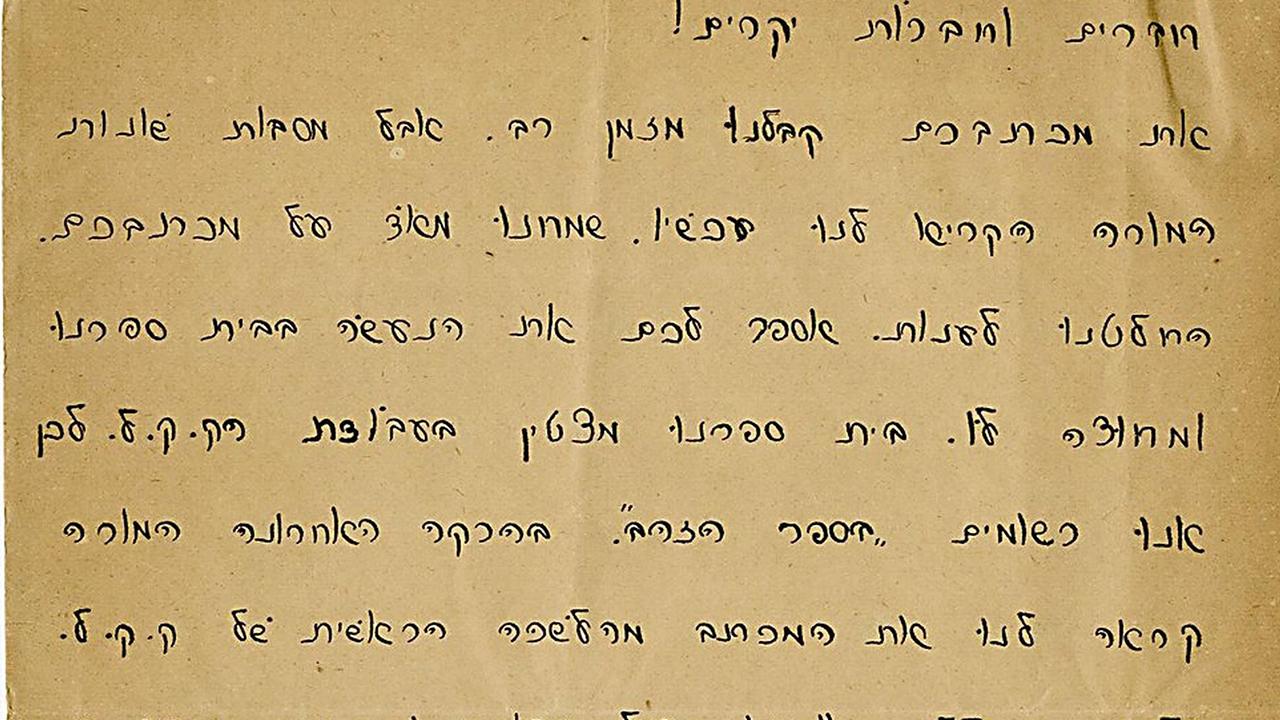 חברים וחברות יקרים!
את מכתבכם קבלנו מזמן רב. אבל מסבות שונות
המורה הקריאו לנו עכשיו. שמחנו מאוד על מכתבכם.
החלטנו לענות. אספר לכם את הנעשה בבית ספרנו
ומחוצה לו. בית ספרנו מצטין בעבודת הק.ק.ל. לכן
אנו רשומים „בספר הזהב”. בהרקה האחרונה המורה
קראה לנו את המכתב מהלשכה הראשית של ק.ק.ל.